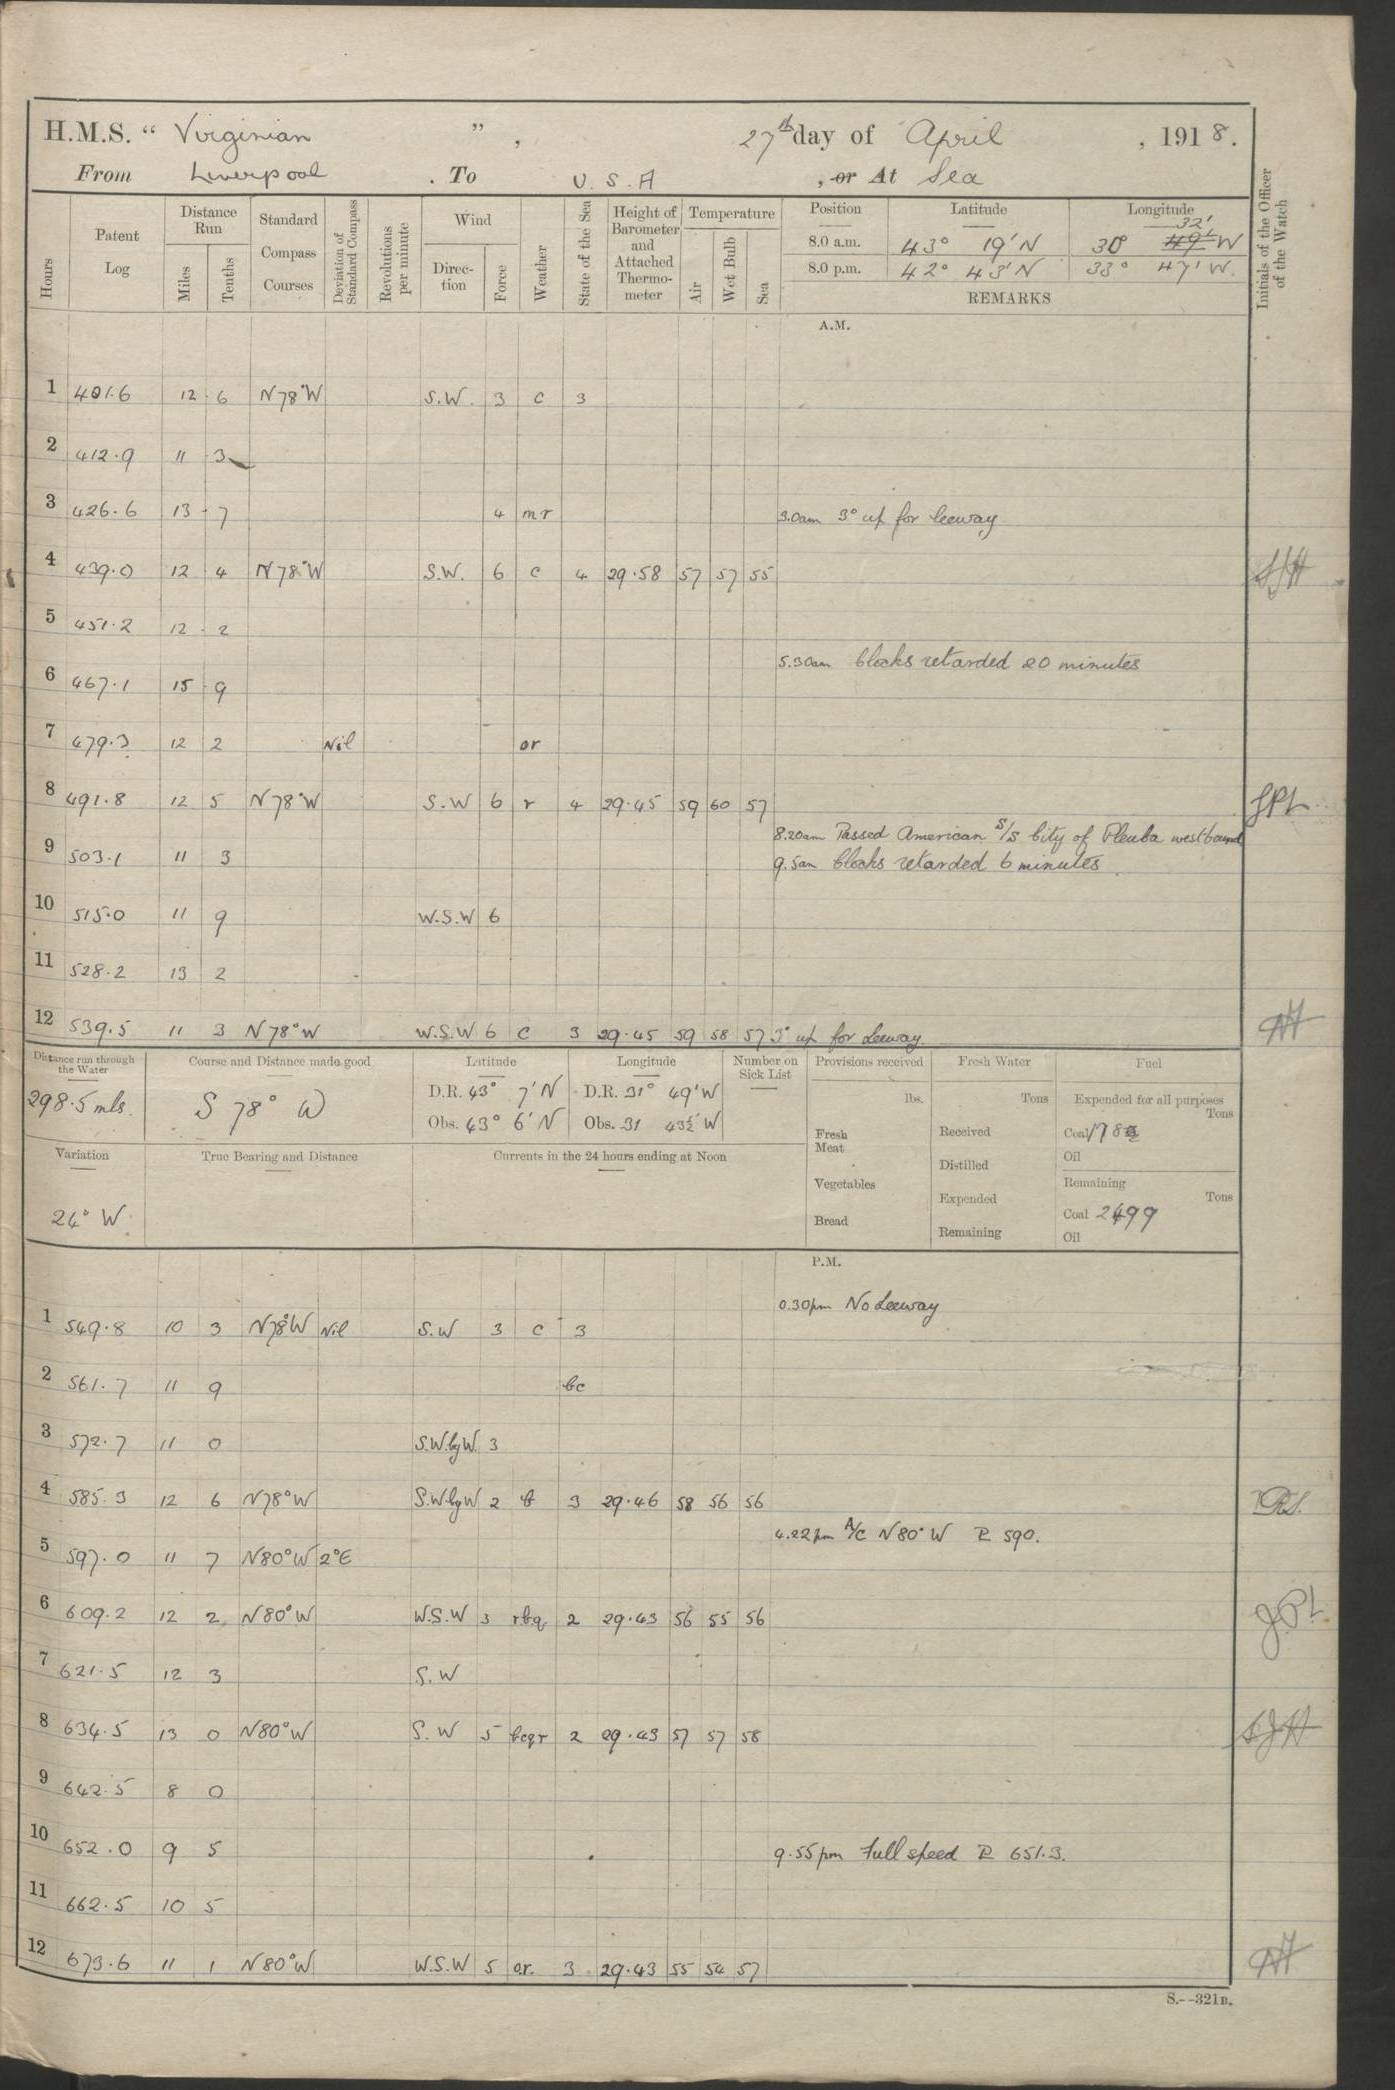 H.M.S. " Virginian ", 27th day of April, 1918.
From Liverpool. To U.S.A, or At Sea
Hours
Patent Log
Distance Run
Miles
Tenths
Standard Compass Courses
Deviation of Standard Compass
Revolutions per minute
Wind
Direction
Force
Weather
State of the Sea
Height of Barometer and Attached Thermometer
Temperature
Air
Wet Bulb
Sea
Position Latitude Longitude
32'
8.0 a.m. 43° 19' N 30° 49' W
8.0 p.m. 42° 43' N 33° 47' W.
REMARKS
Initials of the Officer of the Watch
A.M.
1 401.6 12 . 6 N78°W S.W. 3 c 3
2 412.9 11 3
3 426.6 13 . 7 4 mr 3.0am 3° up for leeway
4 439.0 12 4 N78°W S.W. 6 c 4 29.58 57 57 55
5 451.2 12 . 2
5.30am Clocks retarded 20 minutes
6 467.1 15 . 9
7 479.3 12 2 Nil or
8 491.8 12 5 N78°W S.W 6 r 4 29.45 59 60 57
8.20am Passed American S/S City of westbound
9 503.1 11 3 9.5am Clocks retarded 6 minutes
10 515.0 11 9 W.S.W 6
11 528.2 13 2
12 539.5 11 3 N78°W W.S.W 6 c 3 29.45 59 58 57 3° up for Leeway
Distance run through the Water
298.5 mls.
Course and Distance made good
S 78° W
Latitude
D.R. 43° 7' N
Obs. 43° 6' N
Longitude
D.R. 31° 49' W
Obs. 31 43½' W
Number on Sick List
Provisions received
lbs.
Fresh Meat
Vegetables
Bread
Fresh Water
Tons
Received
Distilled
Expended
Remaining
Fuel
Expended for all purposes
Tons
Coal
Oil
Remaining
Tons
Coal 2499
Oil
Variation
24° W
True Bearing and Distance
Currents in the 24 hours ending at Noon
P.M.
0.30pm No Leeway
1 549.8 10 3 N78°W Nil S.W 3 c 3
2 561.7 11 9 bc
3 572.7 11 0 S.W.byW. 3
4 585.3 12 6 N78°W S.WbyW 2 b 3 29.46 58 56 56
4.22pm A/C N80°W P 590.
5 597.0 11 7 N80°W 2°E
6 609.2 12 2 N80°W W.S.W 3 rbq 2 29.43 56 55 56
7 621.5 12 3 S.W
8 634.5 13 0 N80°W S.W 5 bcqr 2 29.43 57 57 58
9 642.5 8 0
10 652.0 9 5 9.55pm Full speed P 651.3.
11 662.5 10 5
12 673.6 11 1 N80°W W.S.W 5 or. 3 29.43 55 54 57
S.--321B.